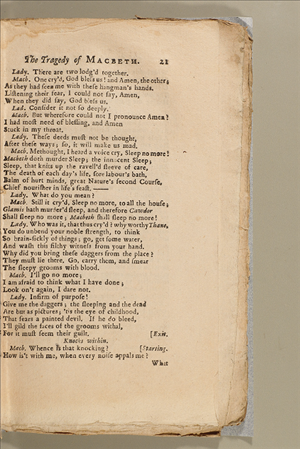 The Tragedy of MACBETH. 21
Lady. There are two lodg'd together.
Macb. One cry'd, God bless us! and Amen, the other;
As they had seen me with these hangman's hands.
Listening their fear, I could not say, Amen,
When they did say, God bless us.
Lad. Consider it not so deeply.
Macb. But wherefore could not I pronounce Amen?
I had most need of blessing, and Amen
Stuck in my throat.
Lady. These deeds must not be thought,
After these ways; so, it will make us mad.
Macb. Methought, I heard a voice cry, Sleep no more!
Macbeth doth murder Sleep; the innocent Sleep;
Sleep, that knits up the ravell'd sleeve of care,
The death of each day's life, sore labour's bath,
Balm of hurt minds, great Nature's second Course,
Chief nourisher in life's feast. ——
Lady. What do you mean?
Macb. Still it cry'd, Sleep no more, to all the house;
Glamis hath murther'd sleep, and therefore Cawdor
Shall sleep no more; Macbeth shall sleep no more!
Lady. Who was it, that thus cry'd? why worthy Thane,
You do unbend your noble strength, to think
So brain-sickly of things; go, get some water,
And wash this filthy witness from your hand.
Why did you bring these daggers from the place?
They must lie there. Go, carry them, and smear
The sleepy grooms with blood.
Macb. I'll go no more;
I am afraid to think what I have done;
Look on't again, I dare not.
Lady. Infirm of purpose!
Give me the daggers; the sleeping and the dead
Are but as pictures; 'tis the eye of childhood,
That fears a painted devil. If he do bleed,
I'll gild the faces of the grooms withal,
For it must seem their guilt. [Exit.
Knocks within.
Macb. Whence is that knocking? [Starting.
How is't with me, when every noise appals me?
What